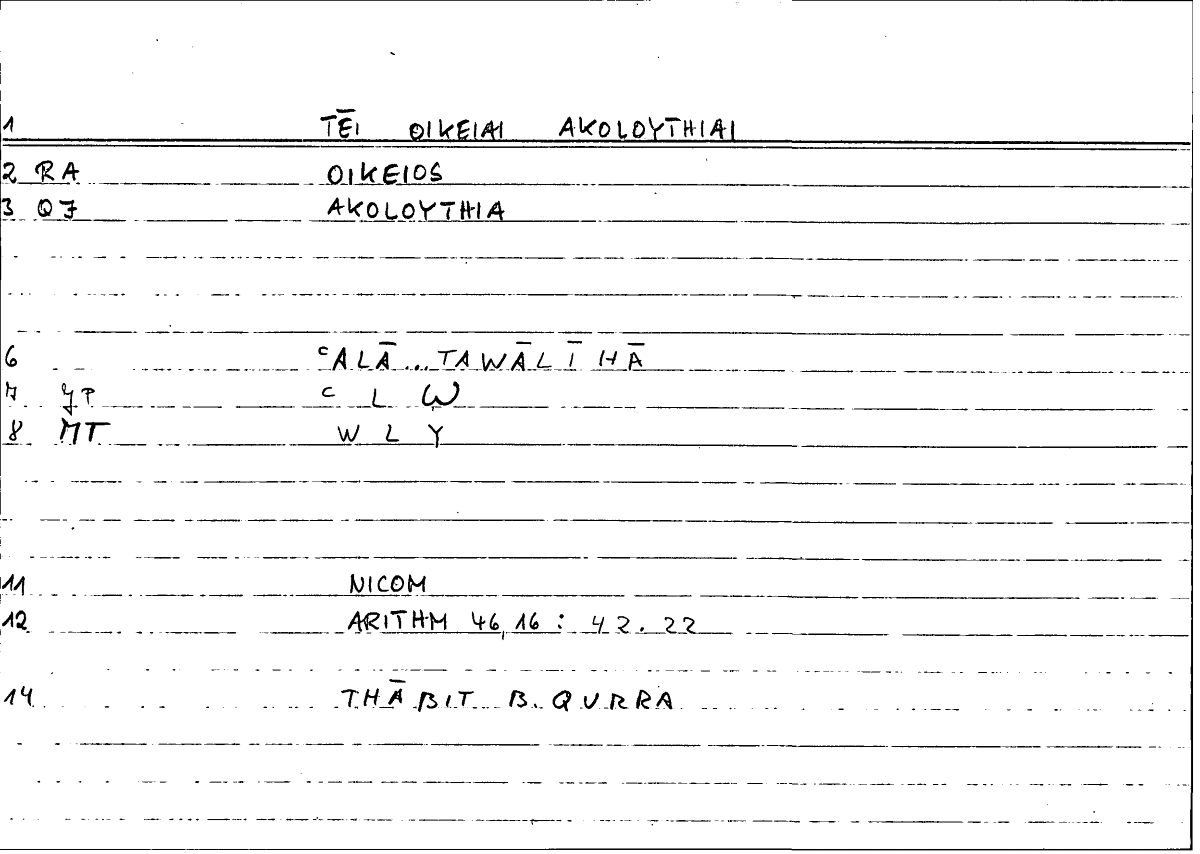 1 TĒI OIKEIAI AKOLOYTHIAI
2 RA OIKEIOS
3 QJ AKOLOYTHIA
6 ᶜALĀ...TAWĀLĪHĀ
7 JP ᶜLW
8 MT WLY
11 NICOM
12 ARITHM 46,16 : 42.22
14 THĀBIT B. QURRA